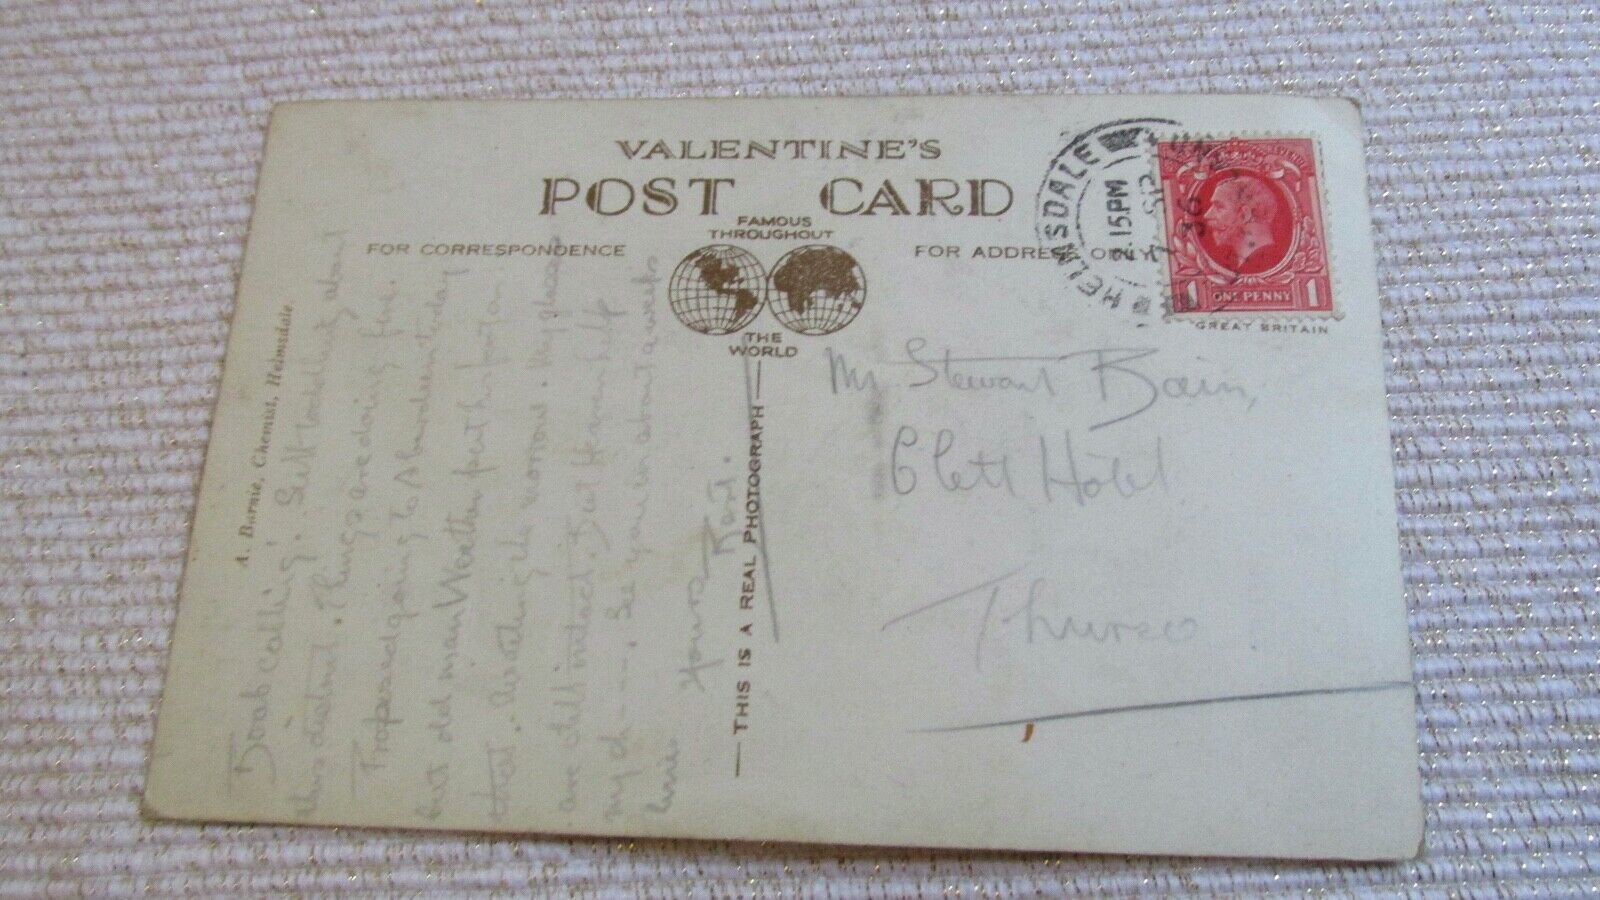 VALENTINE'S
POST CARD
FOR CORRESPONDENCE
FAMOUS
THROUGHOUT
THE
WORLD
FOR ADDRESS ONLY
HELMSDALE
2.15PM
21 SP
36
1 ONE PENNY 1
GREAT BRITAIN
A. Barnie, Chemist, Helmsdale.
THIS IS A REAL PHOTOGRAPH
calling! Still toddling about
this district. Things are doing fine.
Proposed going to Aberdeen today
but old man Weather put his boot on
that. the morrow. My
are still intact. But Heaven help
my ch---. See you in about a weeks
time.
Yours
Mr Stewart Bain,
Clett Hotel
Thurso